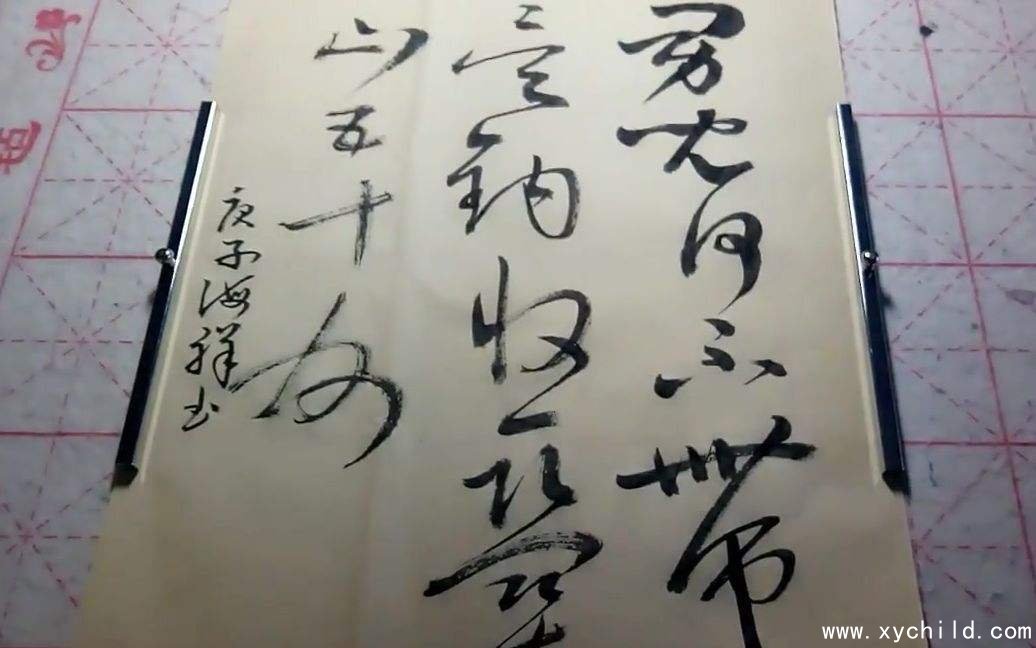 男兒何不帶
吴鈎收取關
山五十州
庚子海祥书
www.xychild.com